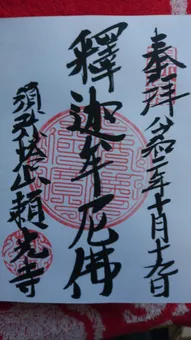 奉拝 令和二年十月十九日
釋迦牟尼佛
須弥山頼光寺